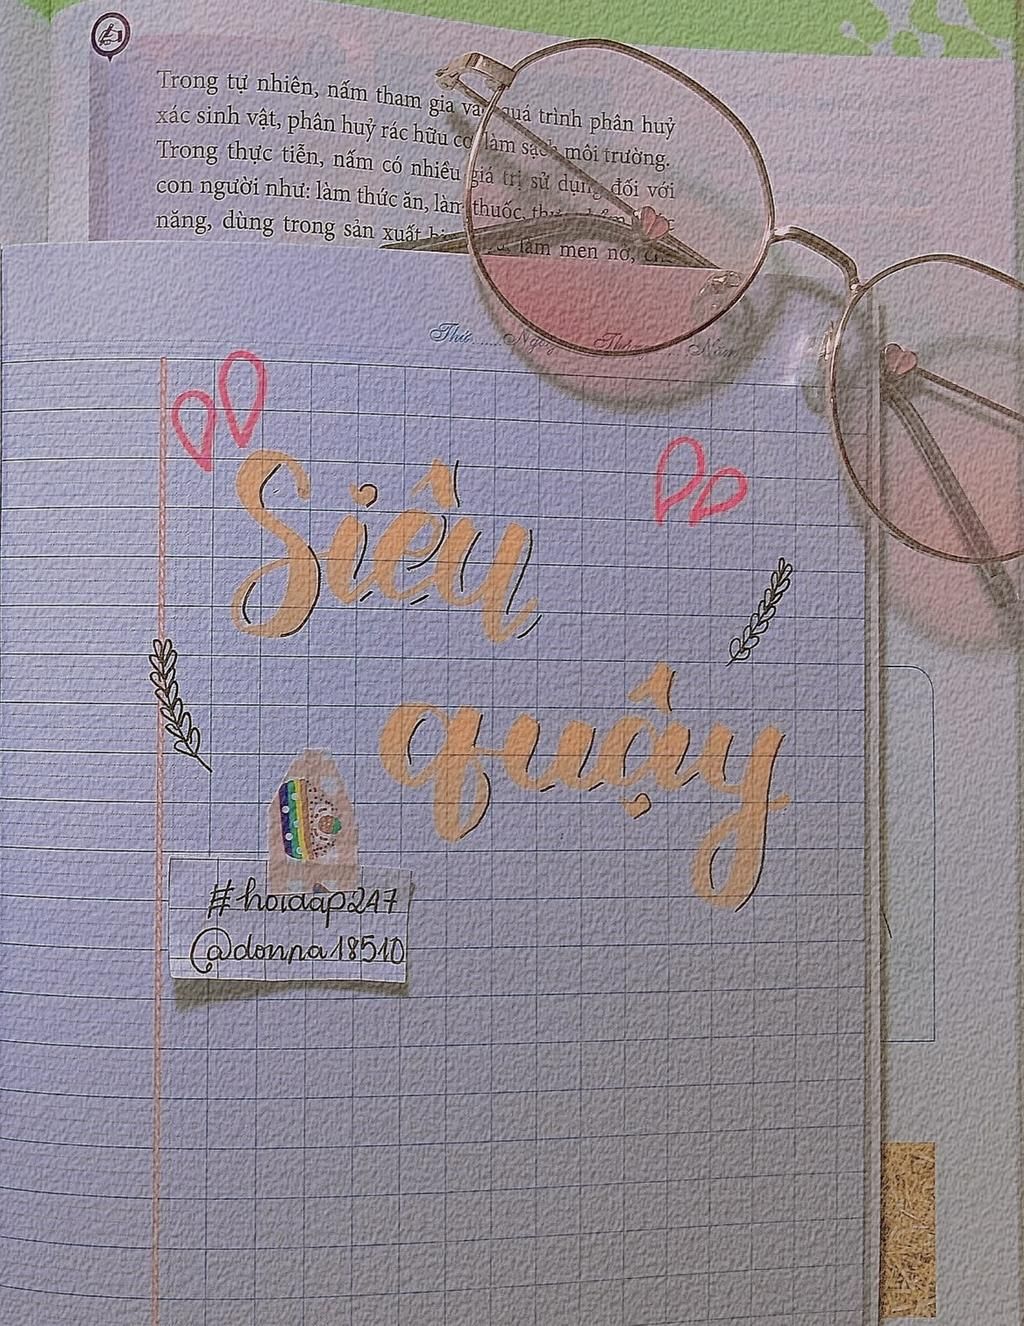 Trong tự nhiên, nấm tham gia vào quá trình phân huỷ
xác sinh vật, phân huỷ rác hữu cơ, làm sạch môi trường.
Trong thực tiễn, nấm có nhiều giá trị sử dụng đối với
con người như: làm thức ăn, làm thuốc,
năng, dùng trong sản xuất làm men nở,
Thứ Ngày Tháng Năm
Siêu
quậy
#hoidap247
@donna18510